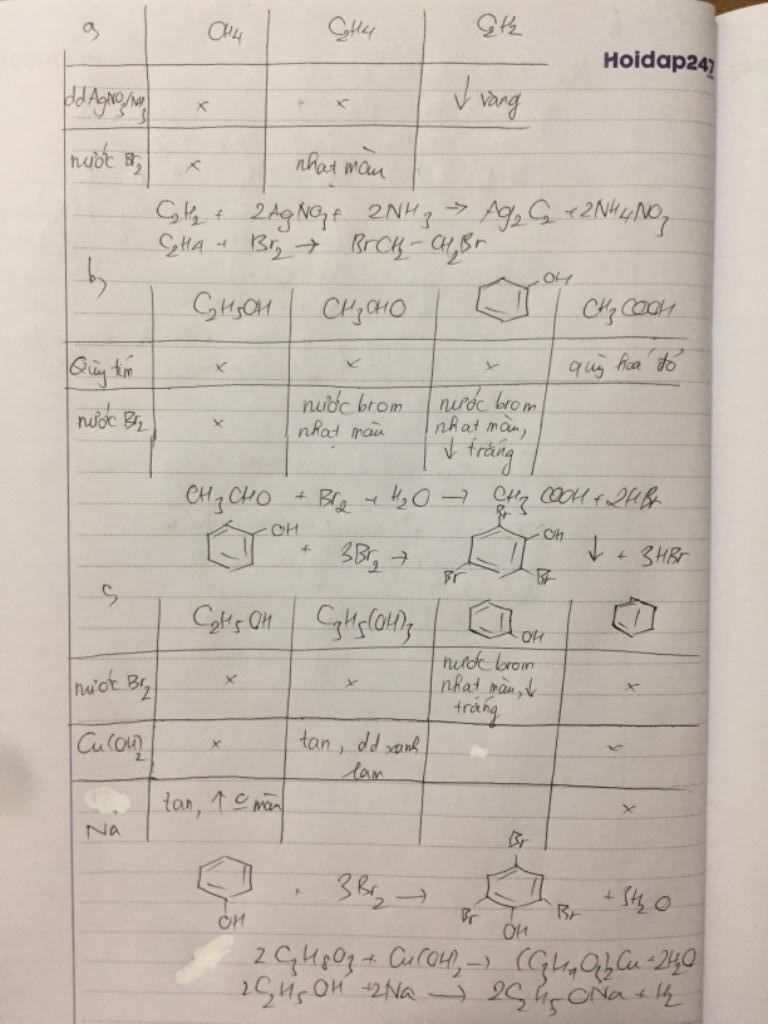 a, CH4 C2H4 C2H2
Hoidap247
dd AgNO3/NH3 x x ↓ vàng
nước Br2 x nhạt màu
C2H2 + 2AgNO3 + 2NH3 → Ag2C2 + 2NH4NO3
C2H4 + Br2 → BrCH2-CH2Br
b, C2H5OH CH3CHO OH CH3COOH
Quỳ tím x x x quỳ hoá đỏ
nước Br2 x nước brom nhạt màu nước brom nhạt màu, ↓ trắng
CH3CHO + Br2 + H2O → CH3COOH + 2HBr
OH + 3Br2 → Br OH Br Br ↓ + 3HBr
c, C2H5OH C3H5(OH)3 OH
nước Br2 x x nước brom nhạt màu, ↓ trắng x
Cu(OH)2 x tan, dd xanh lam x
Na tan, ↑ x
OH + 3Br2 → Br Br Br OH + 3H2O
2C3H8O3 + Cu(OH)2 → (C3H7O3)2Cu + 2H2O
2C2H5OH + 2Na → 2C2H5ONa + H2